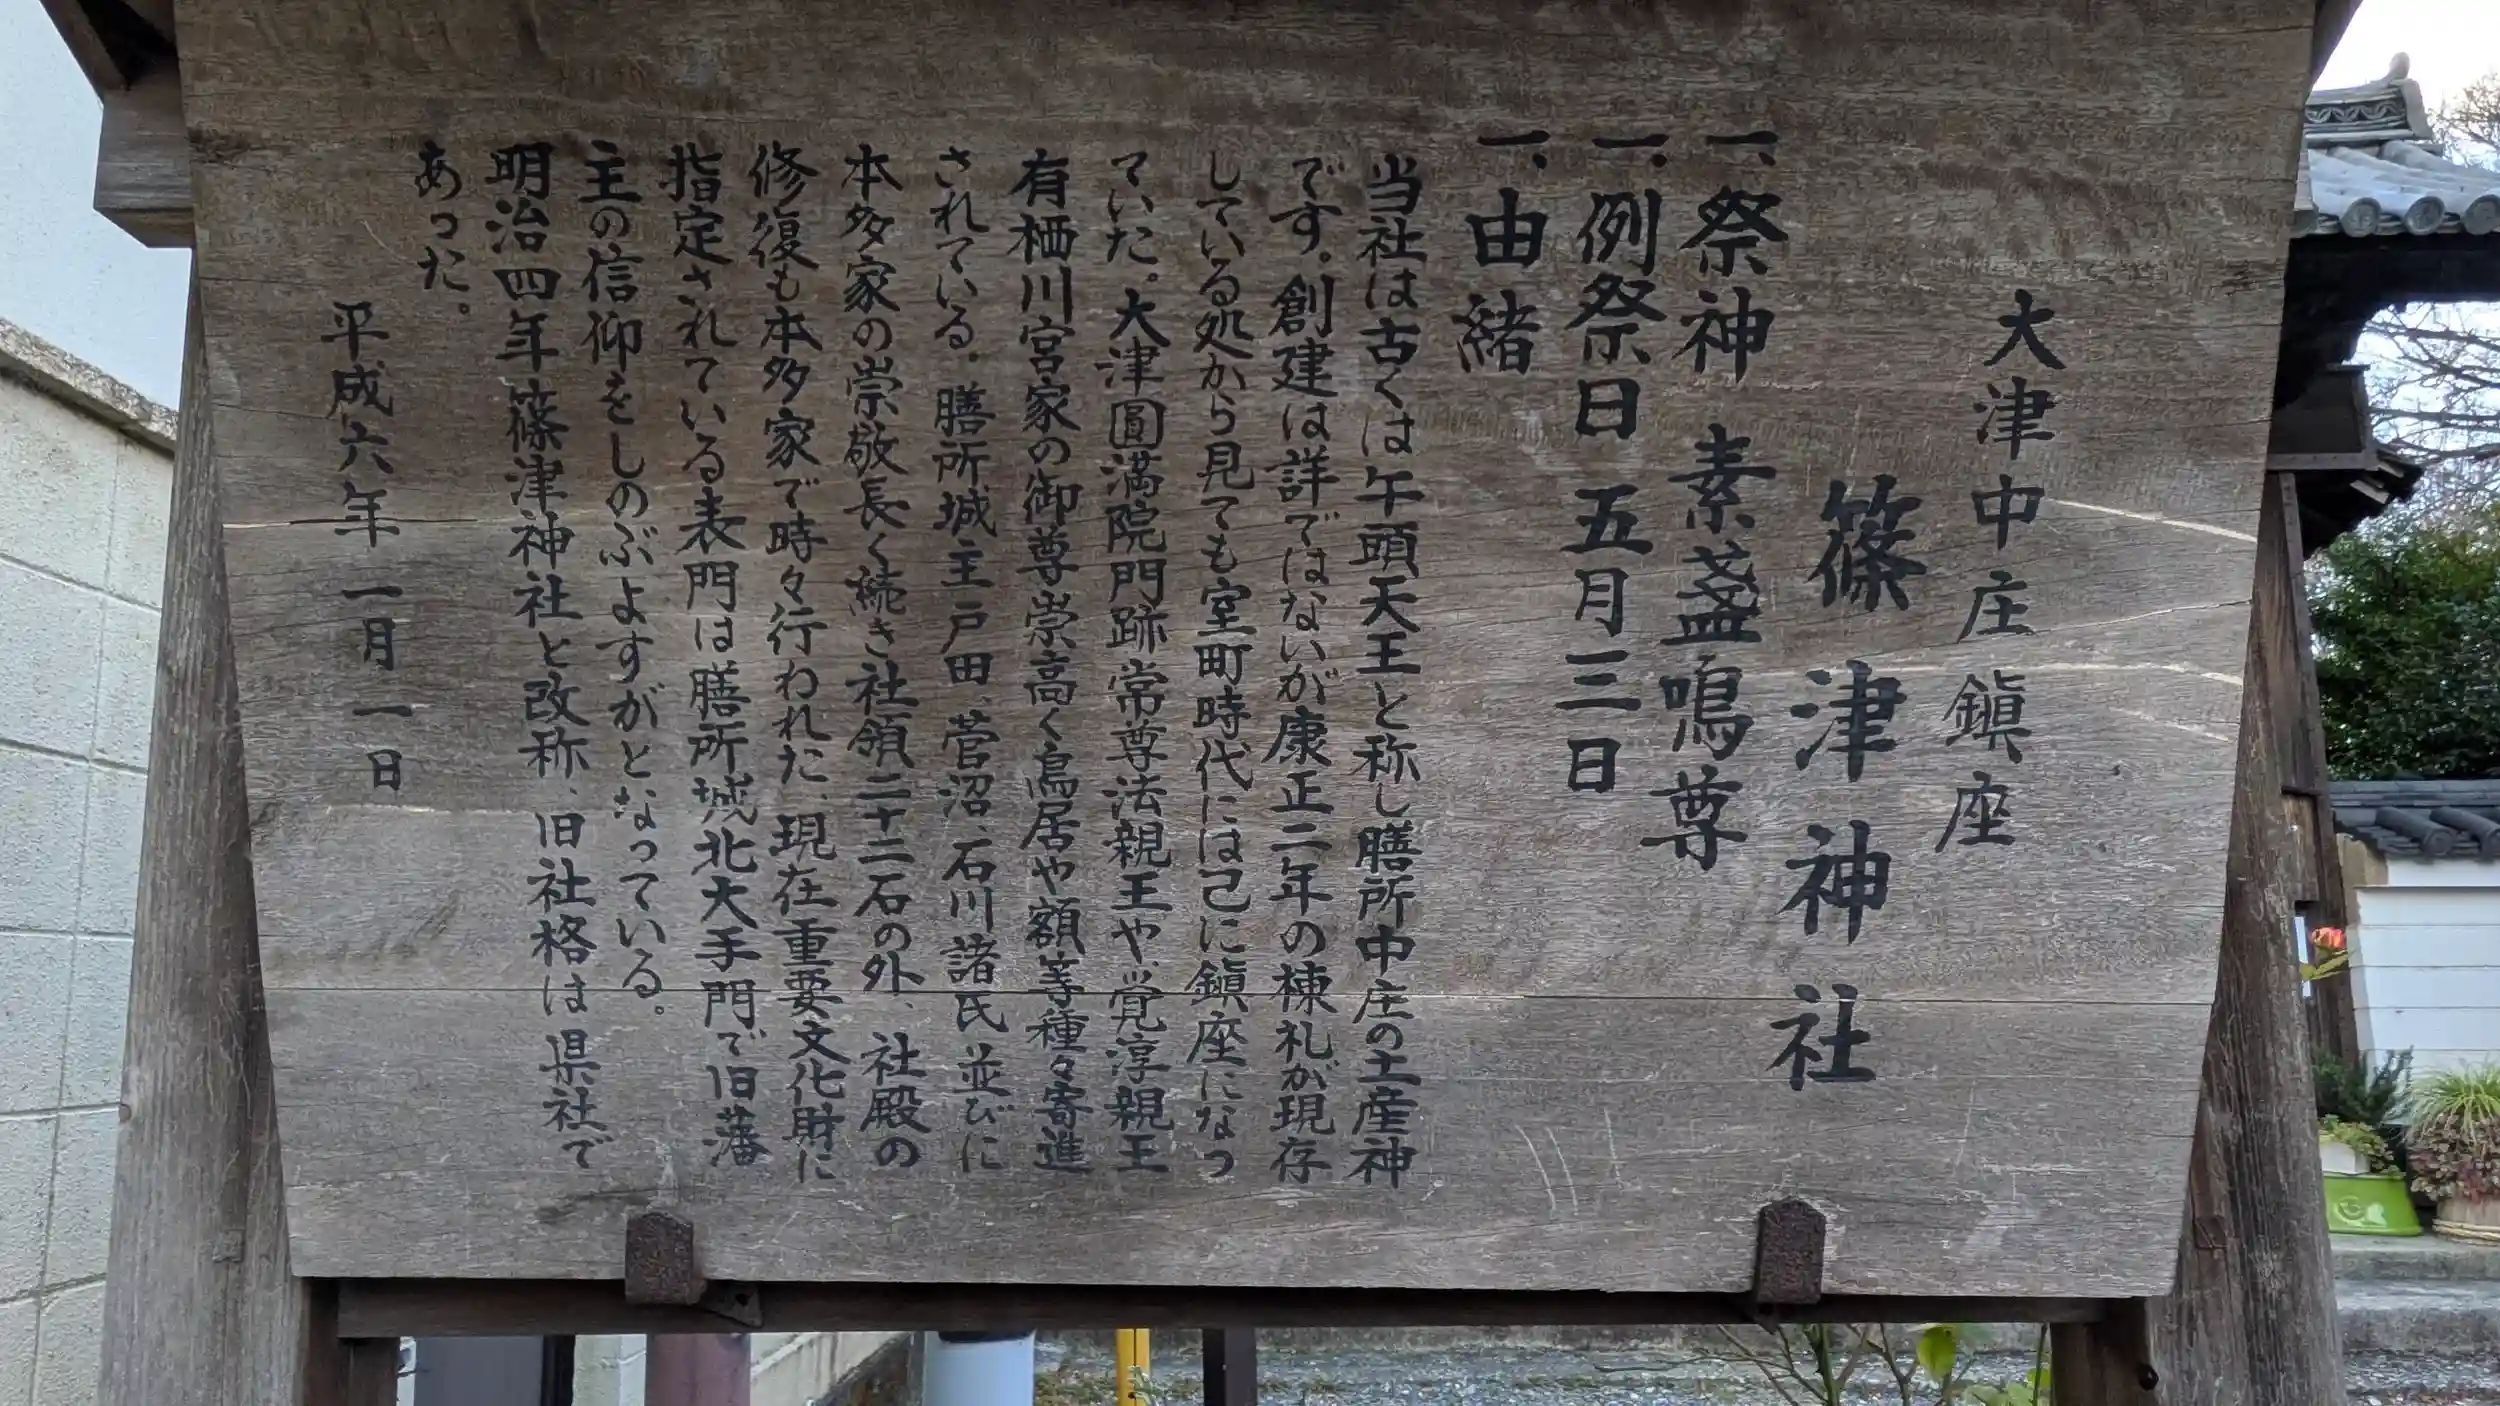 大津中庄鎮座
篠津神社
一、祭神 素盞嗚尊
一、例祭日 五月三日
一、由緒
当社は古くは午頭天王と称し膳所中庄の土産神
です。創建は詳ではないが康正二年の棟礼が現存
している処から見ても室町時代には己に鎭座になっ
ていた。大津圓満院門跡常尊法親王や、覚淳親王
有栖川宮家の御尊崇高く鳥居や額等種々寄進
されている。膳所城主戸田、菅沼、石川諸氏並びに
本多家の崇敬長く続き社領二十二石の外、社殿の
修復も本多家で時々行われた、現在重要文化財に
指定されている表門は膳所城北大手門で旧藩
主の信仰をしのぶよすがとなっている。
明治四年篠津神社と改称、旧社格は県社で
あった。
平成六年一月一日